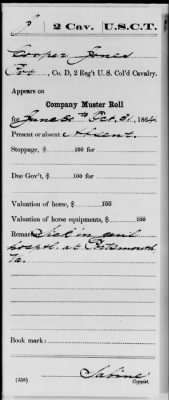 J 2 Cav. U.S.C.T.
Cooper Jones
Pvt, Co. D, 2 Reg't U.S. Col'd Cavalry.
Appears on
Company Muster Roll
for June 30th to Oct. 31, 1864.
Present or absent Absent.
Stoppage, $ 100 for
Due Gov't, $ 100 for
Valuation of horse, $ 100
Valuation of horse equipments, $ 100
Remark: Sick in genl
hosptl. at Portsmouth
Va.
Book mark:
(358)
Sabine
Copyist.